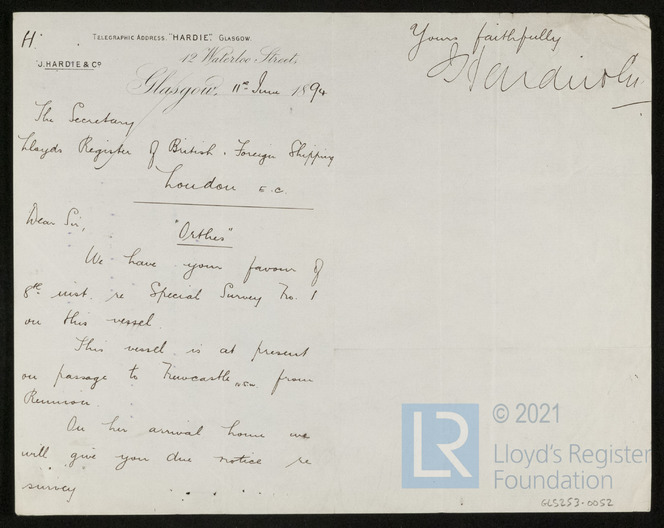 H.
TELEGRAPHIC ADDRESS. "HARDIE", GLASGOW.
J. HARDIE & Co
12 Waterloo Street,
Glasgow, 11th June 1894
The Secretary
Lloyds Register of British & Foreign Shipping
London E.C.
Dear Sir,
"Orthes"
We have your favour of
8th inst. re Special Survey No. 1
on this vessel.
This vessel is at present
on passage to Newcastle NSW from
Reunion.
On her arrival home we
will give you due notice re
survey
Yours faithfully
J Hardie & Co
© 2021
LR
Lloyd's Register
Foundation
GLS253-0052